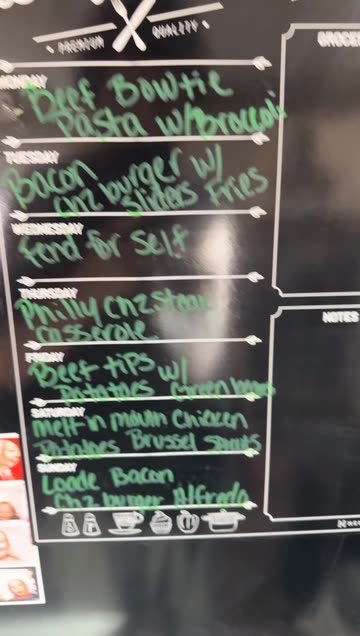 PREMIUM QUALITY
GROCER
MONDAY
Beef Bowtie
Pasta w/Broccoli
TUESDAY
Bacon
chzburger w/
Sliders Fries
WEDNESDAY
fend for Self
THURSDAY
Philly Chzsteak
Casserole
NOTES
FRIDAY
Beef tips w/
Potatoes Green beans
SATURDAY
Melt in mouth Chicken
Potatoes Brussel Sprouts
SUNDAY
Loade Bacon
Chzburger Alfredo